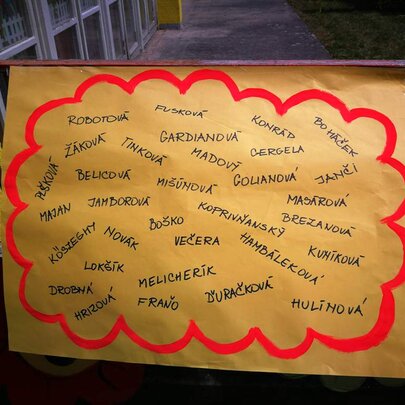 ROBOTOVÁ FUSKOVÁ KONRÁD BOHÁČEK
ŽÁKOVÁ TINKOVÁ GARDIANOVÁ MADOVÝ GERGELA JANČI
PLŠKOVÁ BELICOVÁ MIŠÚNOVÁ GOLIANOVÁ MASÁROVÁ
MAJAN JAMBOROVÁ KOPRIVŇANSKÝ BREZANOVÁ
KÖSZEGHY NOVÁK BOŠKO VEČERA HAMBÁLEKOVÁ KUNÍKOVÁ
LOKŠÍK MELICHERÍK
DROBNÁ HRIZOVÁ FRAŇO ĎURAČKOVÁ HULÍNOVÁ